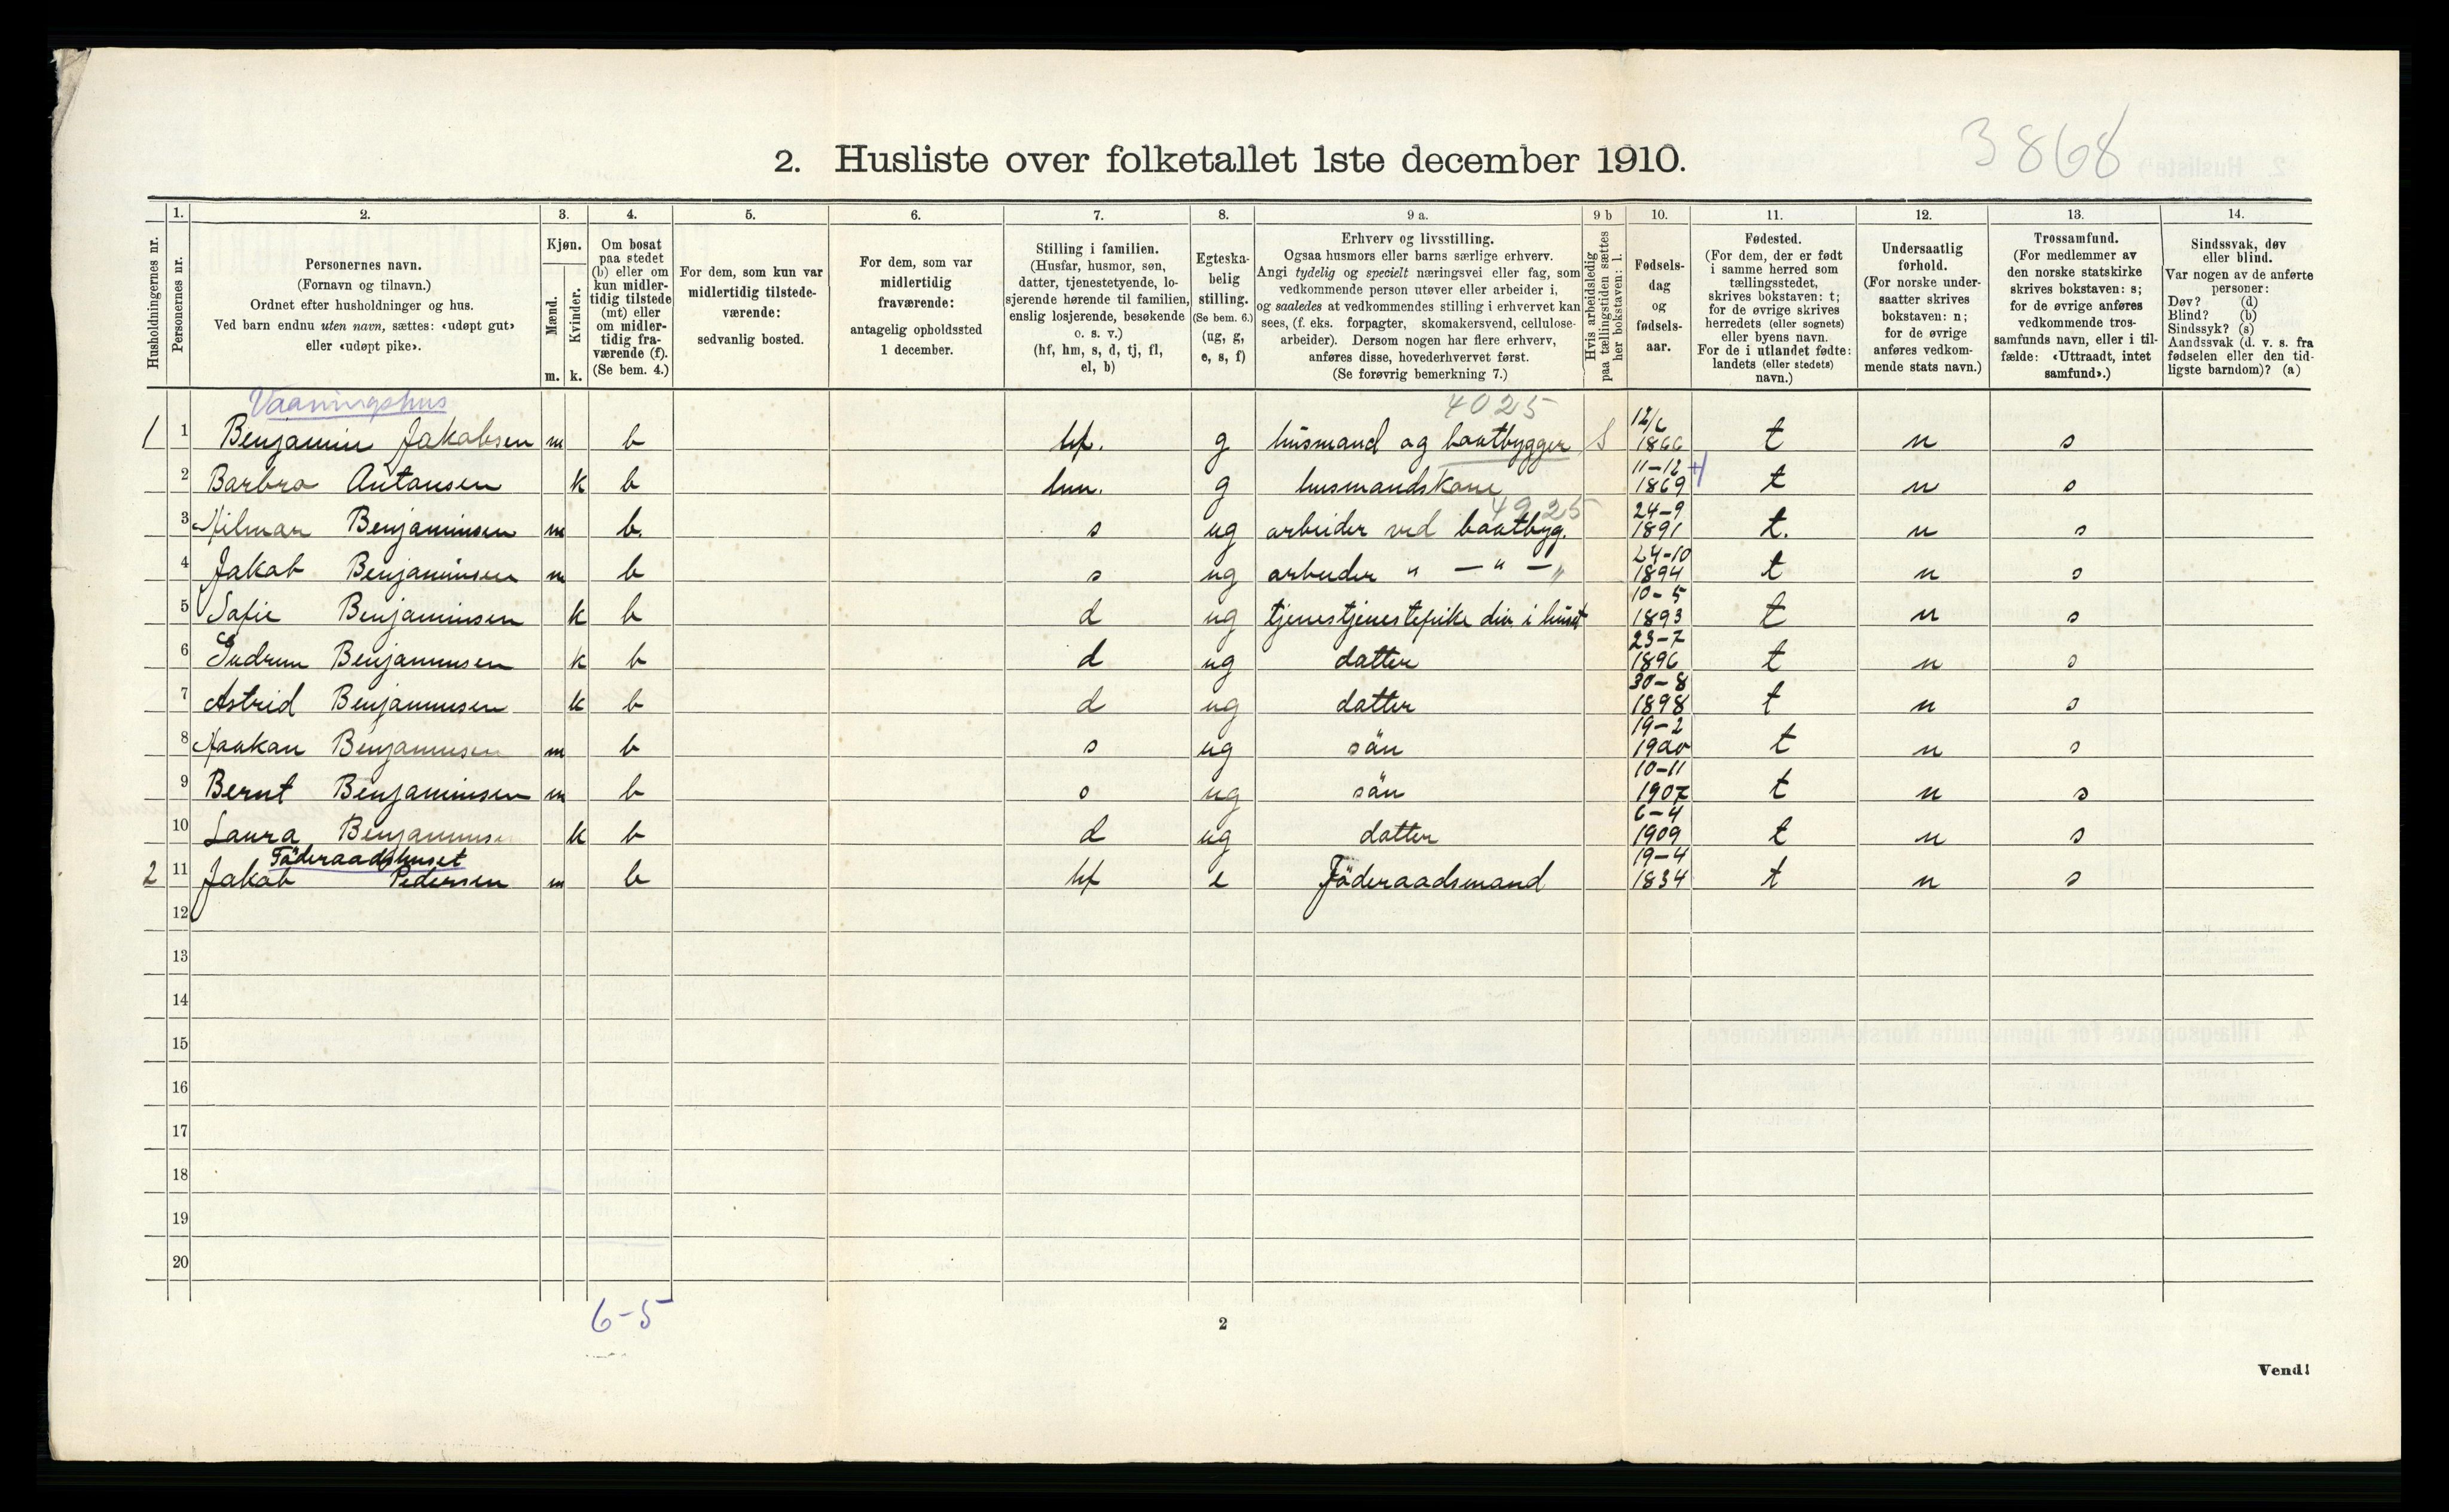 3868
2. Husliste over folketallet 1ste december 1910.
Husholdningernes nr.
1.
Personernes nr.
2.
Personernes navn.
(Fornavn og tilnavn.)
Ordnet efter husholdninger og hus.
Ved barn endnu uten navn, sættes: «udøpt gut»
eller «udøpt pike».
3.
Kjøn.
Mænd.
Kvinder.
m. k.
4.
Om bosat
paa stedet
(b) eller om
kun midler-
tidig tilstede
(mt) eller
om midler-
tidig fra-
værende (f).
(Se bem. 4.)
5.
For dem, som kun var
midlertidig tilstede-
værende:
sedvanlig bosted.
6.
For dem, som var
midlertidig
fraværende:
antagelig opholdssted
1 december.
7.
Stilling i familien.
(Husfar, husmor, søn,
datter, tjenestetyende, lo-
sjerende hørende til familien,
enslig losjerende, besøkende
o. s. v.)
(hf, hm, s, d, tj, fl,
el, b)
8.
Egteska-
belig
stilling.
(Se bem. 6.)
(ug, g,
e, s, f)
9 a.
Erhverv og livsstilling.
Ogsaa husmors eller barns særlige erhverv.
Angi tydelig og specielt næringsvei eller fag, som
vedkommende person utøver eller arbeider i,
og saaledes at vedkommendes stilling i erhvervet kan
sees, (f. eks. forpagter, skomakersvend, cellulose-
arbeider). Dersom nogen har flere erhverv,
anføres disse, hovederhvervet først.
(Se forøvrig bemerkning 7.)
9 b
Hvis arbeidsledig
paa tællingstiden sættes
her bokstaven: l.
10.
Fødsels-
dag
og
fødsels-
aar.
11.
Fødested.
(For dem, der er født
i samme herred som
tællingsstedet,
skrives bokstaven: t;
for de øvrige skrives
herredets (eller sognets)
eller byens navn.
For de i utlandet fødte:
landets (eller stedets)
navn.)
12.
Undersaatlig
forhold.
(For norske under-
saatter skrives
bokstaven: n;
for de øvrige
anføres vedkom-
mende stats navn.)
13.
Trossamfund.
(For medlemmer av
den norske statskirke
skrives bokstaven: s;
for de øvrige anføres
vedkommende tros-
samfunds navn, eller i til-
fælde: «Uttraadt, intet
samfund».)
14.
Sindssvak, døv
eller blind.
Var nogen av de anførte
personer:
Døv? (d)
Blind? (b)
Sindssyk? (s)
Aandssvak (d. v. s. fra
fødselen eller den tid-
ligste barndom)? (a)
Vaaningshus 4025
1 1 Benjamin Jakobsen m b hf. g husmand og baatbygger S 12/6 1866 t n s
2 Barbro Antonsen k b hm. g husmandskone 11-12 1869 t n s
4925
3 Hilmar Benjaminsen m b. s ug arbeider ved baatbyg. 24-9 1891 t. n s
4 Jakob Benjaminsen m b s ug arbeider " — " — " 24-10 1894 t n s
5 Sofie Benjaminsen k b d ug tjenestjenestepike div i huset 10-5 1893 t n s
6 Gudrun Benjaminsen k b d ug datter 23-7 1896 t n s
7 Astrid Benjaminsen k b d ug datter 30-8 1898 t n s
8 Haakan Benjaminsen m b s ug sön 19-2 1900 t n s
9 Bernt Benjaminsen m b s ug sön 10-11 1907 t n s
10 Laura Benjaminsen k b d ug datter 6-4 1909 t n s
Föderaadshuset
2 11 Jakob Pedersen m b hf e Föderaadsmand 19-4 1834 t n s
12
13
14
15
16
17
18
19
20
6-5
2
Vend!